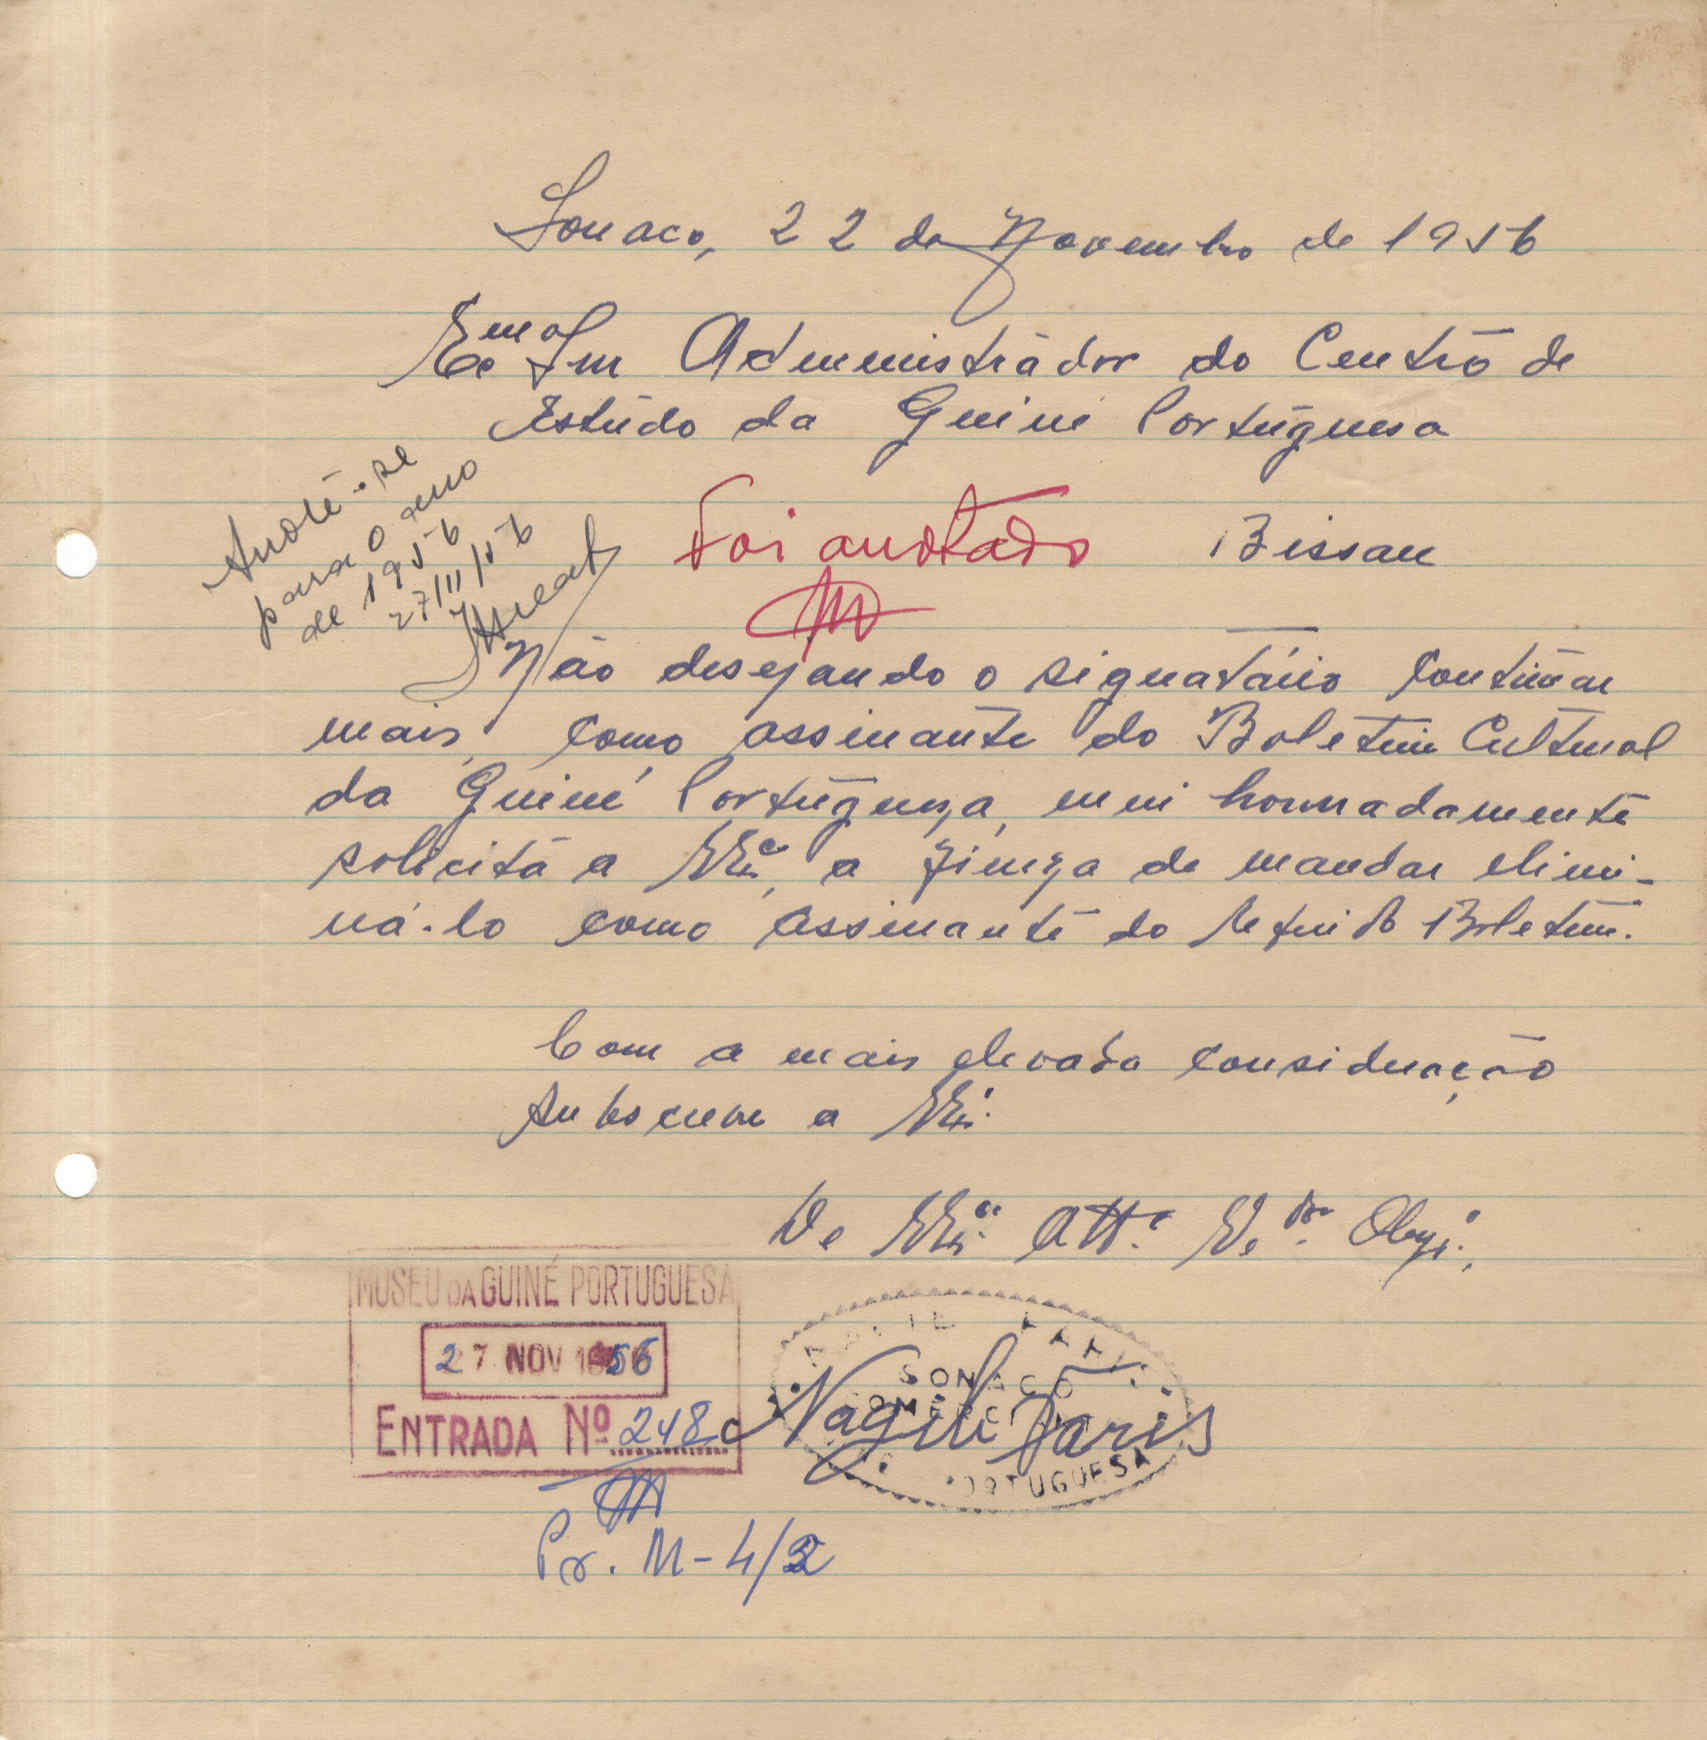 Sonaco, 22 de Novembro de 1956
Exmo Snr Administrador do Centro de
Estudo da Guiné Portuguesa
Anote-se
para o ano
de 1956
27/11/56
Foi anotado
Bissau
Não desejando o signatário continuar
mais, como assinante do Boletim Cultural
da Guiné Portuguesa, mui honradamente
solicita a V.Exª, a fineza de mandar elimi-
ná-lo como assinante do referido Boletim.
Com a mais elevada consideração
subscreve a V.Exª.
De V.Exª. Attº. Vedor. Obgº.
MUSEU DA GUINÉ PORTUGUESA
27 NOV 1956
ENTRADA Nº 248
SONACO
COMERCI
PORTUGUESA
Nagib Faris
Pr. M-4/2